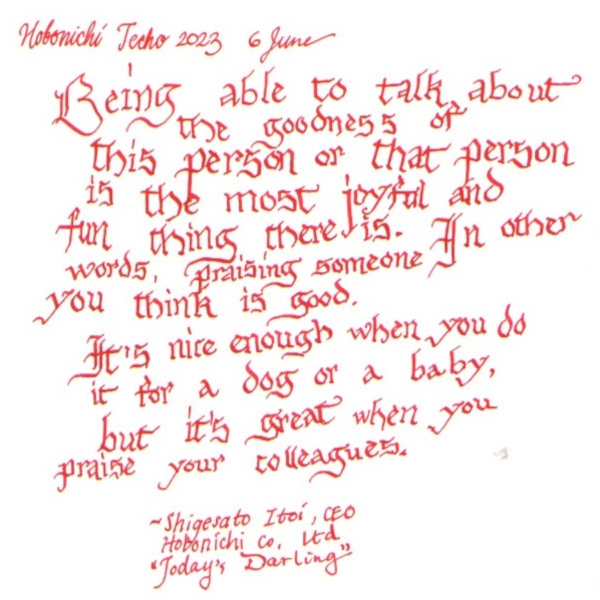 Hobonichi Techo 2023 6 June
Being able to talk about
the goodness of
this person or that person
is the most joyful and
fun thing there is. In other
words, praising someone
you think is good.
It's nice enough when you do
it for a dog or a baby,
but it's great when you
praise your colleagues.
~Shigesato Itoi, CEO
Hobonichi Co. Ltd
"Today's Darling"